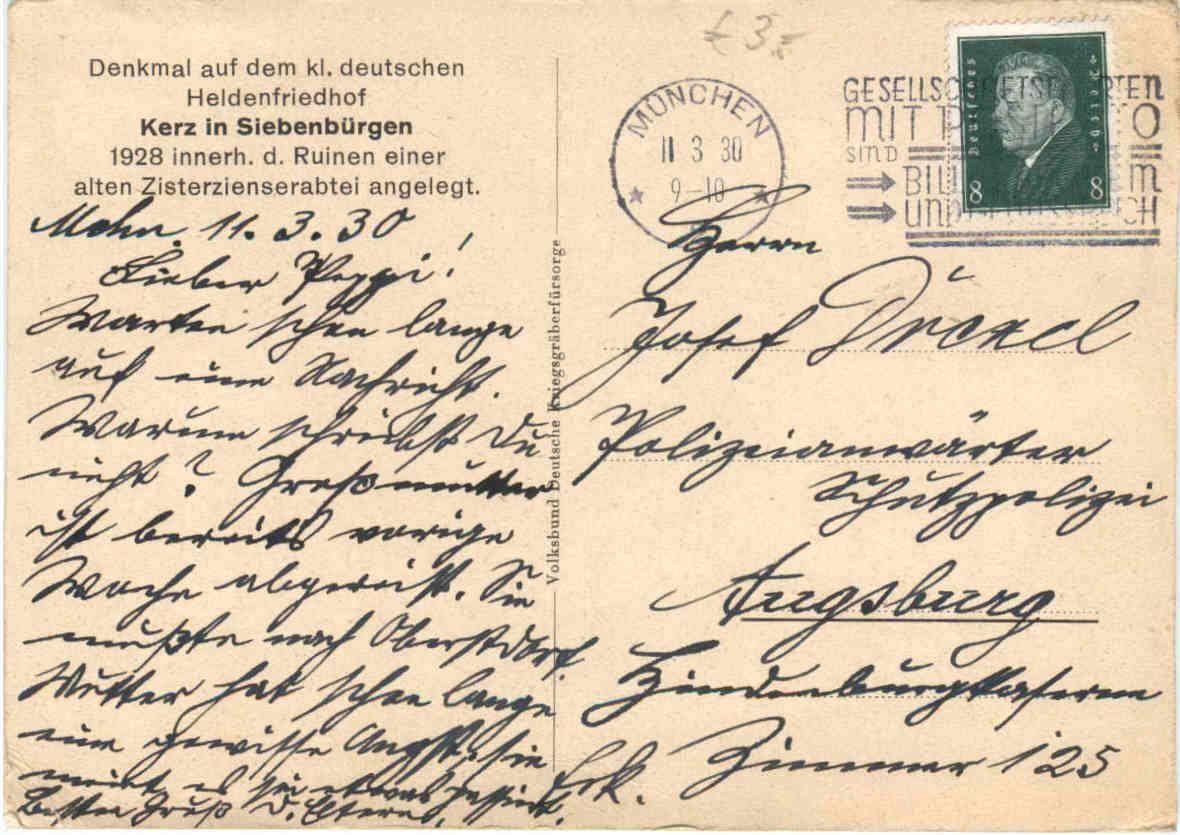 Denkmal auf dem kl. deutschen
Heldenfriedhof
Kerz in Siebenbürgen
1928 innerh. d. Ruinen einer
alten Zisterzienserabtei angelegt.
Mchn. 11.3.30
Lieber Peppi!
Warten schon lange
auf eine Nachricht.
Warum schreibst Du
nicht? Großmutter
ist bereits vorige
Woche abgereist. Sie
mußte nach Oberstdorf.
Mutter hat schon lange
eine gewisse Angst, sie
meint es sei etwas passiert.
Besten Gruß D. Eltern
Volksbund Deutsche Kriegsgräberfürsorge
£ 3
MÜNCHEN
11 3 30
9-10
GESELLSCHAFTSFAHRTEN
MIT
SIND
UND
Deutsches Reich
8 8
Herrn
Josef
Polizeianwärter
Schutzpolizei
Augsburg
Hindenburgkaserne
Zimmer 125